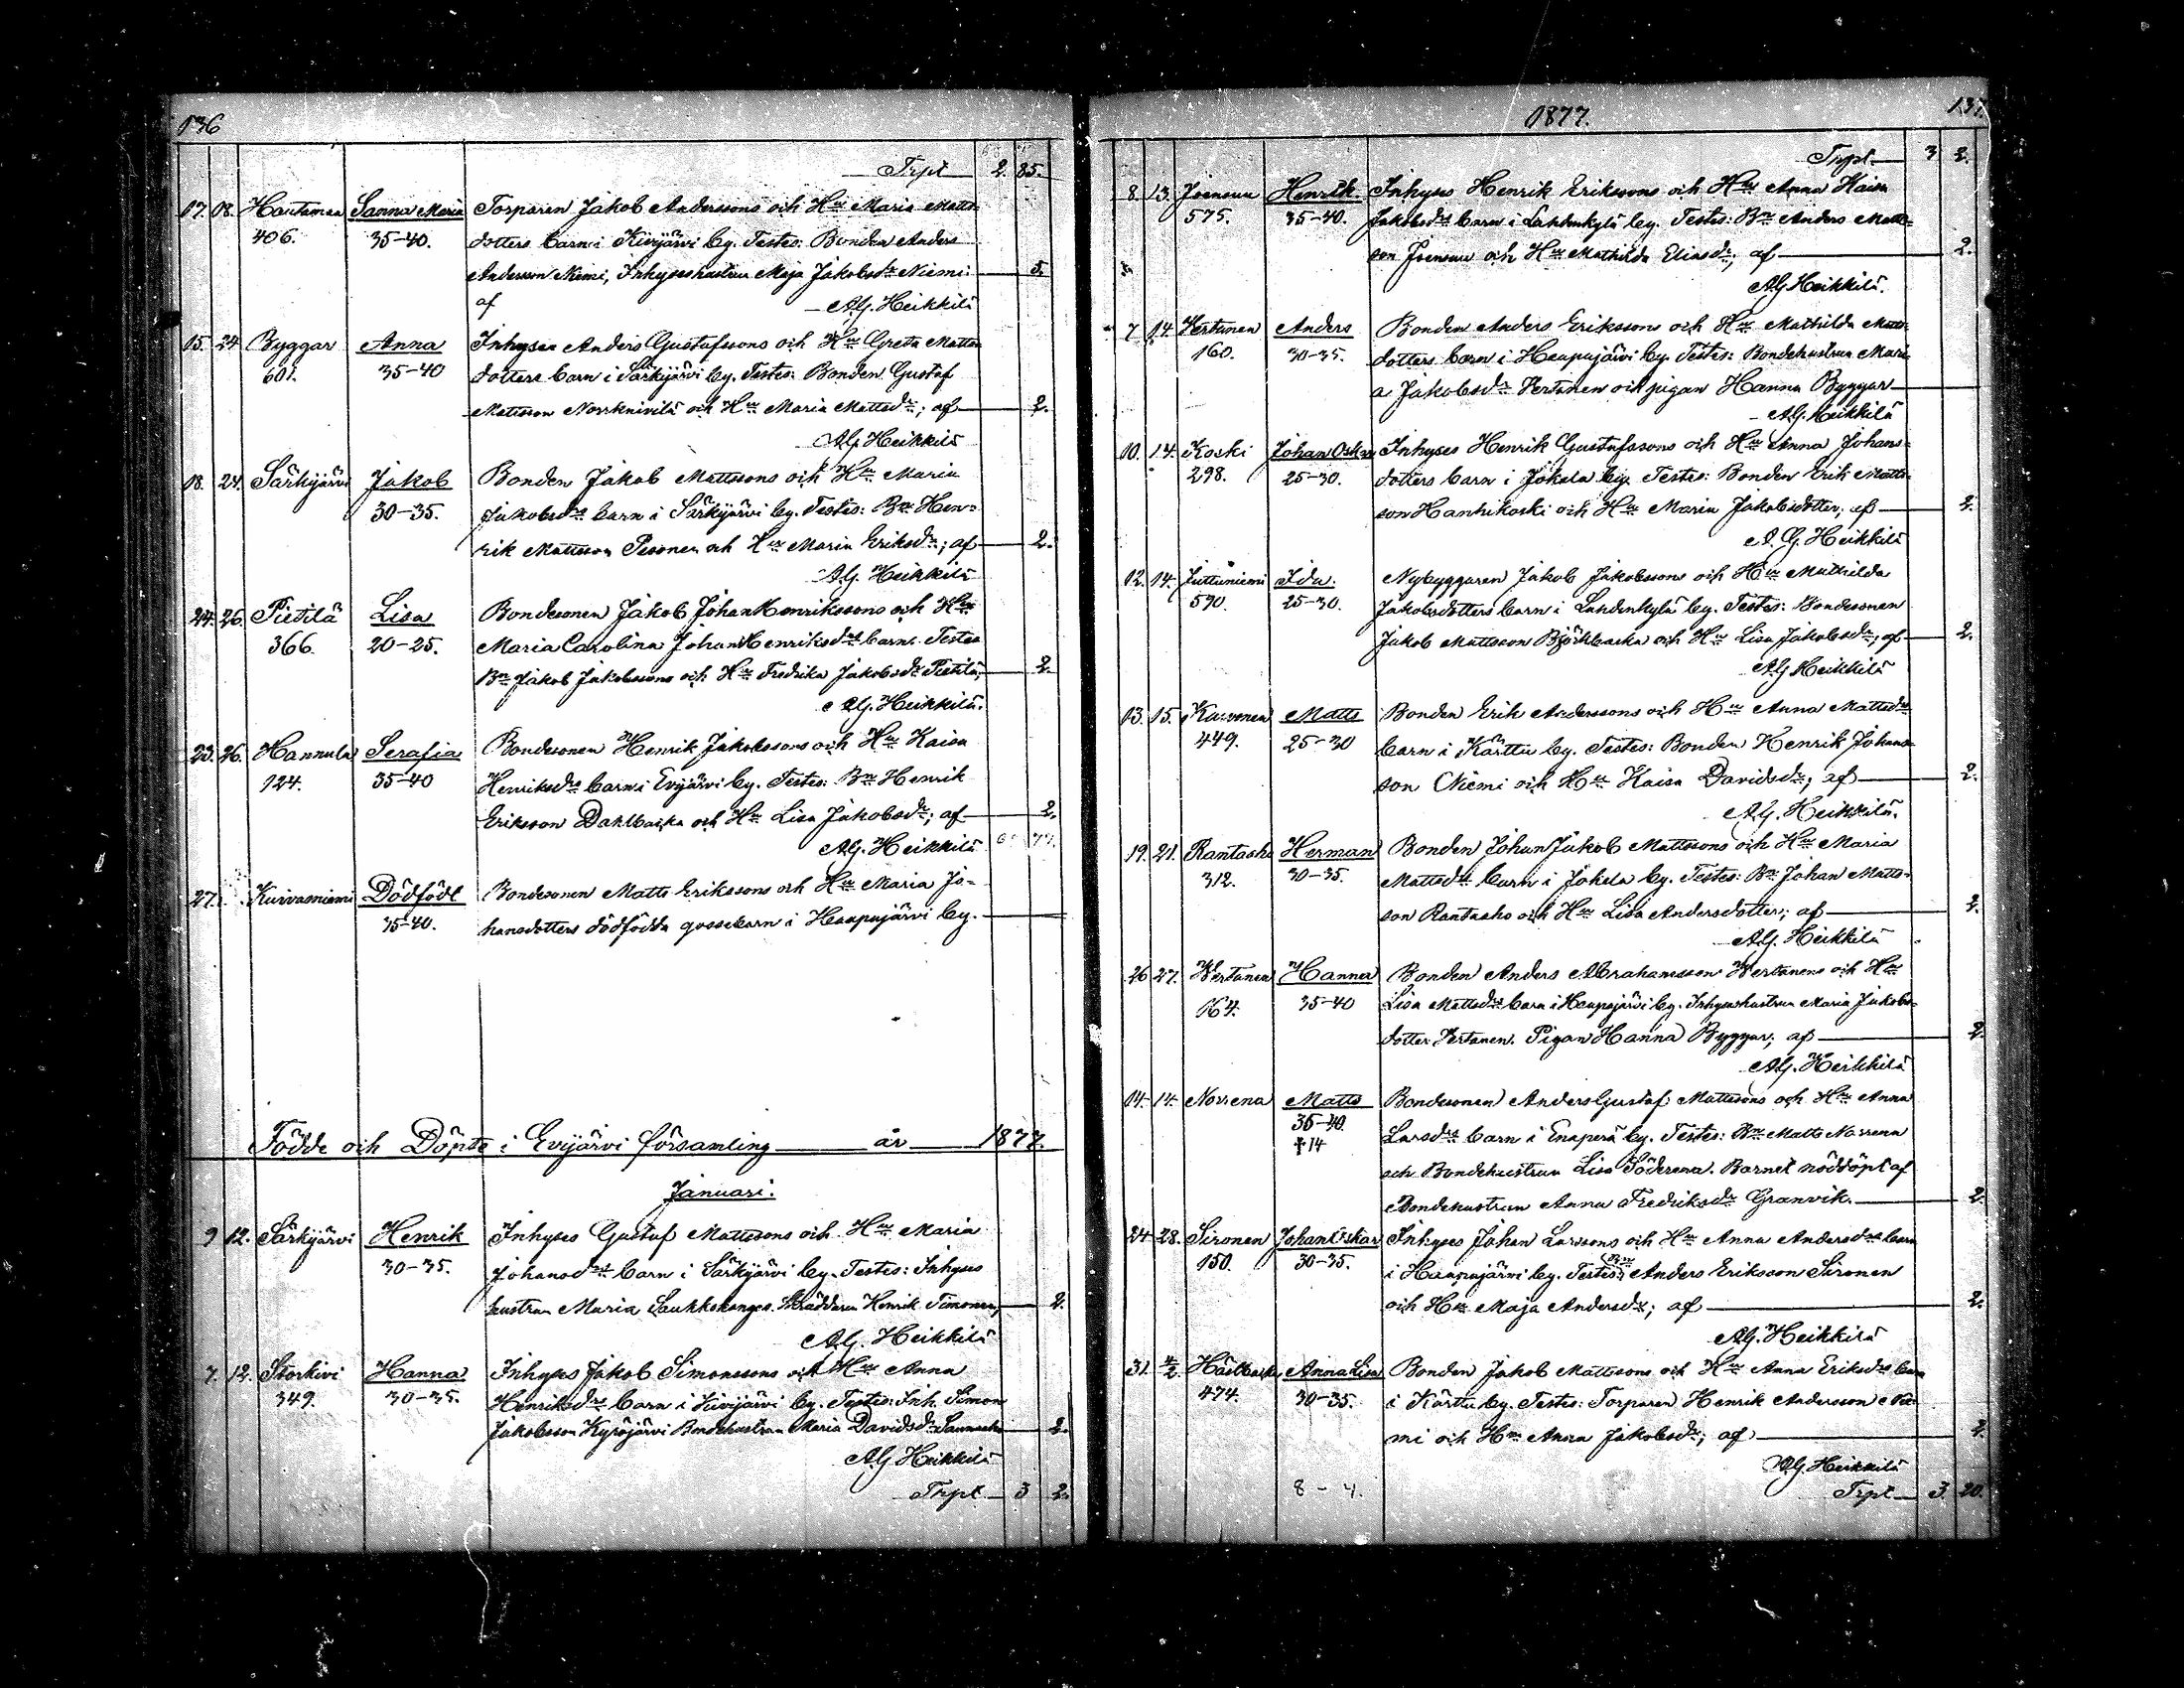 136
Trpt 2. 85.
17. 18. Hautamaa Sanna Maria Torparen Jakob Anderssons och Hu Maria Matts-
406. 35-40. dotters barn i Kivijärvi by. Testes: Bonden Anders
Andersson Niemi, Inhyseshustrun Maja Jakobsdr Niemi. 5.
af A.G. Heikkilä
15. 24. Byggar Anna Inhyses Anders Gustafssons och Hu Greta Matts-
601. 35-40 dotters barn i Särkijärvi by. Testes: Bonden Gustaf
Mattsson Norrknivilä och Hu Maria Mattsdr; af 2.
A.G. Heikkilä
18. 24. Särkijärvi Jakob Bonden Jakob Mattssons och Hu Maria
30-35. Jakobsdrs barn i Särkijärvi by. Testes: Bn Hen-
rik Mattsson Pesonen och Hu Maria Eriksdr; af 2.
A.G. Heikkilä
24. 26. Pietilä Lisa Bondesonen Jakob Johan Henrikssons och Hu
366. 20-25. Maria Carolina Johan Henriksdrs barn. Testes
Bn Jakob Jakobssons och Hu Fredrika Jakobsdr Pietilä; 2.
A.G. Heikkilä.
23. 26. Hannula Serafia Bondesonen Henrik Jakobssons och Hu Kaisa
124. 35-40 Henriksdrs barn i Evijärvi by. Testes: Bn Henrik
Eriksson Dahlbacka och Hu Lisa Jakobsdr; af 2.
A.G. Heikkilä
27. Kurvasniemi Dödfödt Bondesonen Matts Erikssons och Hu Maria Jo-
35-40. hansdotters dödfödda gossebarn i Haapajärvi by.
Födde och Döpte i Evijärvi församling år 1877.
Januari.
9 12. Särkijärvi Henrik Inhyses Gustaf Mattssons och Hu Maria
30-35. Johansdrs barn i Särkijärvi by. Testes: Inhyses
hustrun Maria Saukkokangas. Skräddaren Henrik Timonen, 2.
A.G. Heikkilä
7. 12. Storkivi Hanna Inhyses Jakob Simonssons och Hu Anna
349. 30-35. Henriksdrs barn i Kivijärvi by. Testes: Inh. Simon
Jakobsson Kypöjärvi Bondehustrun Maria Davidsdr 2.
A.G. Heikkilä
Trpt. 3 2.
1877. 137.
Trpt. 3 2.
8. 13. Joensuu Henrik Inhyses Henrik Erikssons och Hu Anna Kaisa
575. 35-40. Jakobsdrs barn i Lahdenkylä by. Testes: Bn Anders Matts-
son Joensuu och Hu Mathilda Eliasdr; af 2.
A.G. Heikkilä.
7 14. Kertunen Anders Bonden Anders Erikssons och Hu Mathilda Matts-
160. 30-35. dotters barn i Haapajärvi by. Testes: Bondehustrun Mari-
a Jakobsdr Kertunen och pigan Hanna Byggar
A.G. Heikkilä
10. 14. Koski Johan Oskar Inhyses Henrik Gustafssons och Hu Anna Johans-
298. 25-30. dotters barn i Jokela by. Testes: Bonden Erik Matts-
son Hanhikoski och Hu Maria Jakobsdotter; af 2.
A.G. Heikkilä
12. 14. Juttuniemi Ida. Nybyggaren Jakob Jakobssons och Hu Mathilda
590. 25-30. Jakobsdotters barn i Lahdenkylä by. Testes: Bondesonen
Jakob Mattsson Björkbacka och Hu Lisa Jakobsdr; af 2.
A.G. Heikkilä
13. 15. Kurvonen Matts Bonden Erik Anderssons och Hu Anna Mattsdrs
449. 25-30 barn i Kärttu by. Testes: Bonden Henrik Johans-
son Niemi och Hu Kaisa Davidsdr; af 2.
A.G. Heikkilä.
19. 21. Rantaaho Herman Bonden Johan Jakob Mattssons och Hu Maria
312. 30-35. Mattsdrs barn i Jokela by. Testes: Bn Johan Matts-
son Rantaaho och Hu Lisa Andersdotter; af 2.
A.G. Heikkilä
26 27. Wertanen Hanna Bonden Anders Abrahamsson Wertanens och Hu
164. 35-40 Lisa Mattsdrs barn i Haapajärvi by. Inhyseshustrun Maria Jakobs-
dotter Kertunen. Pigan Hanna Byggar; af 2.
A.G. Heikkilä
14. 14. Norrena Matts Bondesonen Anders Gustaf Mattssons och Hu Anna
35-40. Larsdrs barn i Enaperä by. Testes: Bn Matts Norrena
† 14 och Bondehustrun Lisa Söderena. Barnet nöddöpt af
Bondehustrun Anna Fredriksdr Granvik. 2.
24 28. Sironen Johan Oskar Inhyses Johan Larssons och Hu Anna Andersdrs barn
150. 30-35. i Haapajärvi by. Testes: Bn Anders Eriksson Sironen
och Hu Maja Andersdr; af 2.
A.G. Heikkilä
31. 4/2. Anna Lisa Bonden Jakob Mattssons och Hu Anna Eriksdrs barn
474. 30-35. i Kärttu by. Testes: Torparen Henrik Andersson Nie-
mi och Hu Anna Jakobsdr; af 2.
A.G. Heikkilä
8 - 4. Trpt 3. 20.